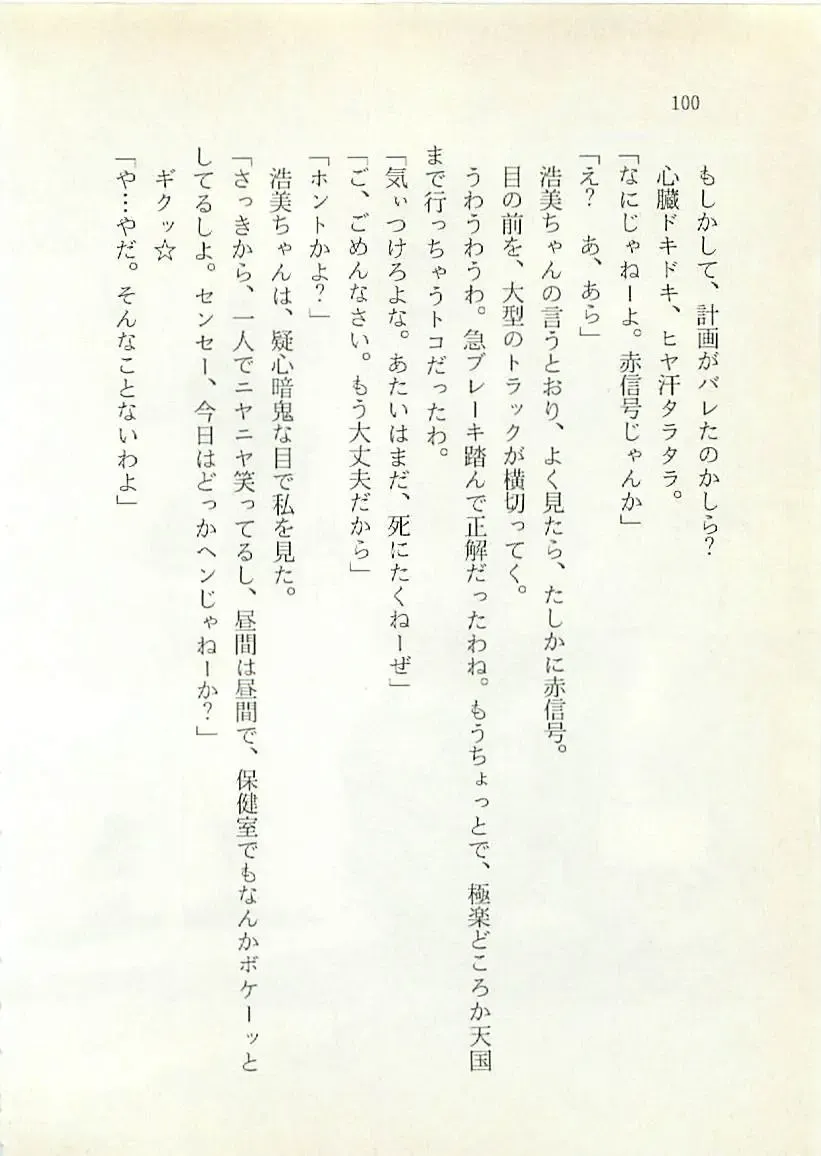 100
もしかして、計画がバレたのかしら?
心臓ドキドキ、ヒヤ汗タラタラ。
「なにじゃねーよ。赤信号じゃんか」
「え? あ、あら」
浩美ちゃんの言うとおり、よく見たら、たしかに赤信号。
目の前を、大型のトラックが横切ってく。
うわうわうわ。急ブレーキ踏んで正解だったわね。もうちょっとで、極楽どころか天国
まで行っちゃうトコだったわ。
「気ぃつけろよな。あたいはまだ、死にたくねーぜ」
「ご、ごめんなさい。もう大丈夫だから」
「ホントかよ?」
浩美ちゃんは、疑心暗鬼な目で私を見た。
「さっきから、一人でニヤニヤ笑ってるし、昼間は昼間で、保健室でもなんかボケーッと
してるしよ。センセー、今日はどっかヘンじゃねーか?」
ギクッ☆
「や…やだ。そんなことないわよ」